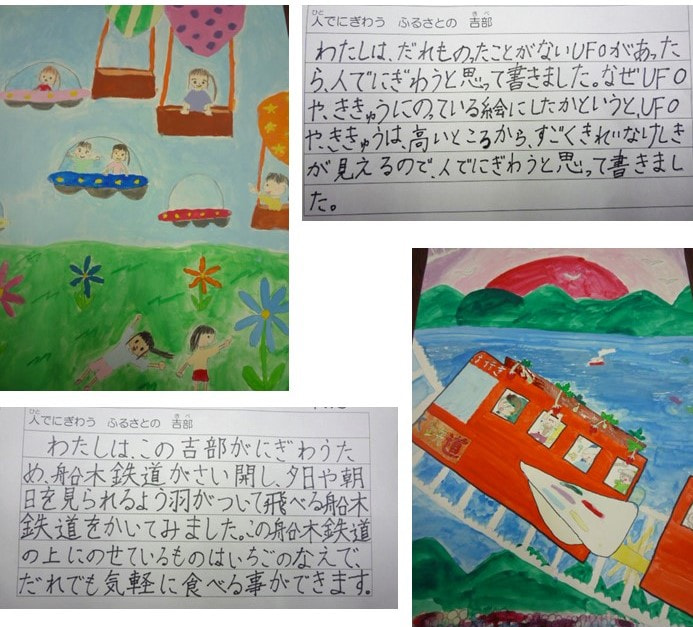 人でにぎわう ふるさとの 吉部
わたしは、だれものったことがないUFOがあった
ら、人でにぎわうと思って書きました。なぜUFO
や、ききゅうにのっている絵にしたかというと、UFO
や、ききゅうは、高いところから、すごくきれいなけしき
が見えるので、人でにぎわうと思って書きまし
た。
人でにぎわう ふるさとの 吉部
わたしは、この吉部がにぎわうた
め、船木鉄道がさい開し、夕日や朝
日を見られるよう羽がついて飛べる船木
鉄道をかいてみました。この船木鉄道
の上にのせているものはいちごのなえで、
だれでも気軽に食べる事ができます。